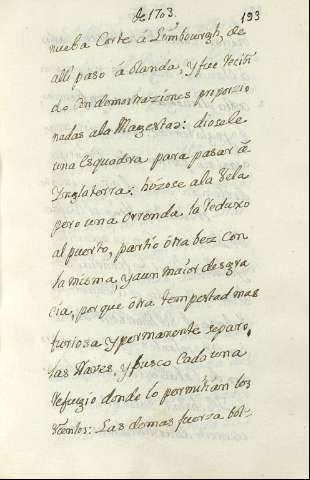 de 1703.
193
nueba Corte á Limbourgh, de
alli paso á olanda, y fue recibi
do con demonstraziones proporzio
nadas a la Magestad: diosele
una esquadra para pasar á
Ynglaterra: hizose a la vela
pero una orrenda la reduxo
al puerto, partio ótra bez con
la misma, y aun maior desgra
cia, por que ótra tempestad mas
furiosa y permanente separo,
las Naves, y busco cada una
refugio donde lo permitian los
vientos: Las demas fuerza bol-